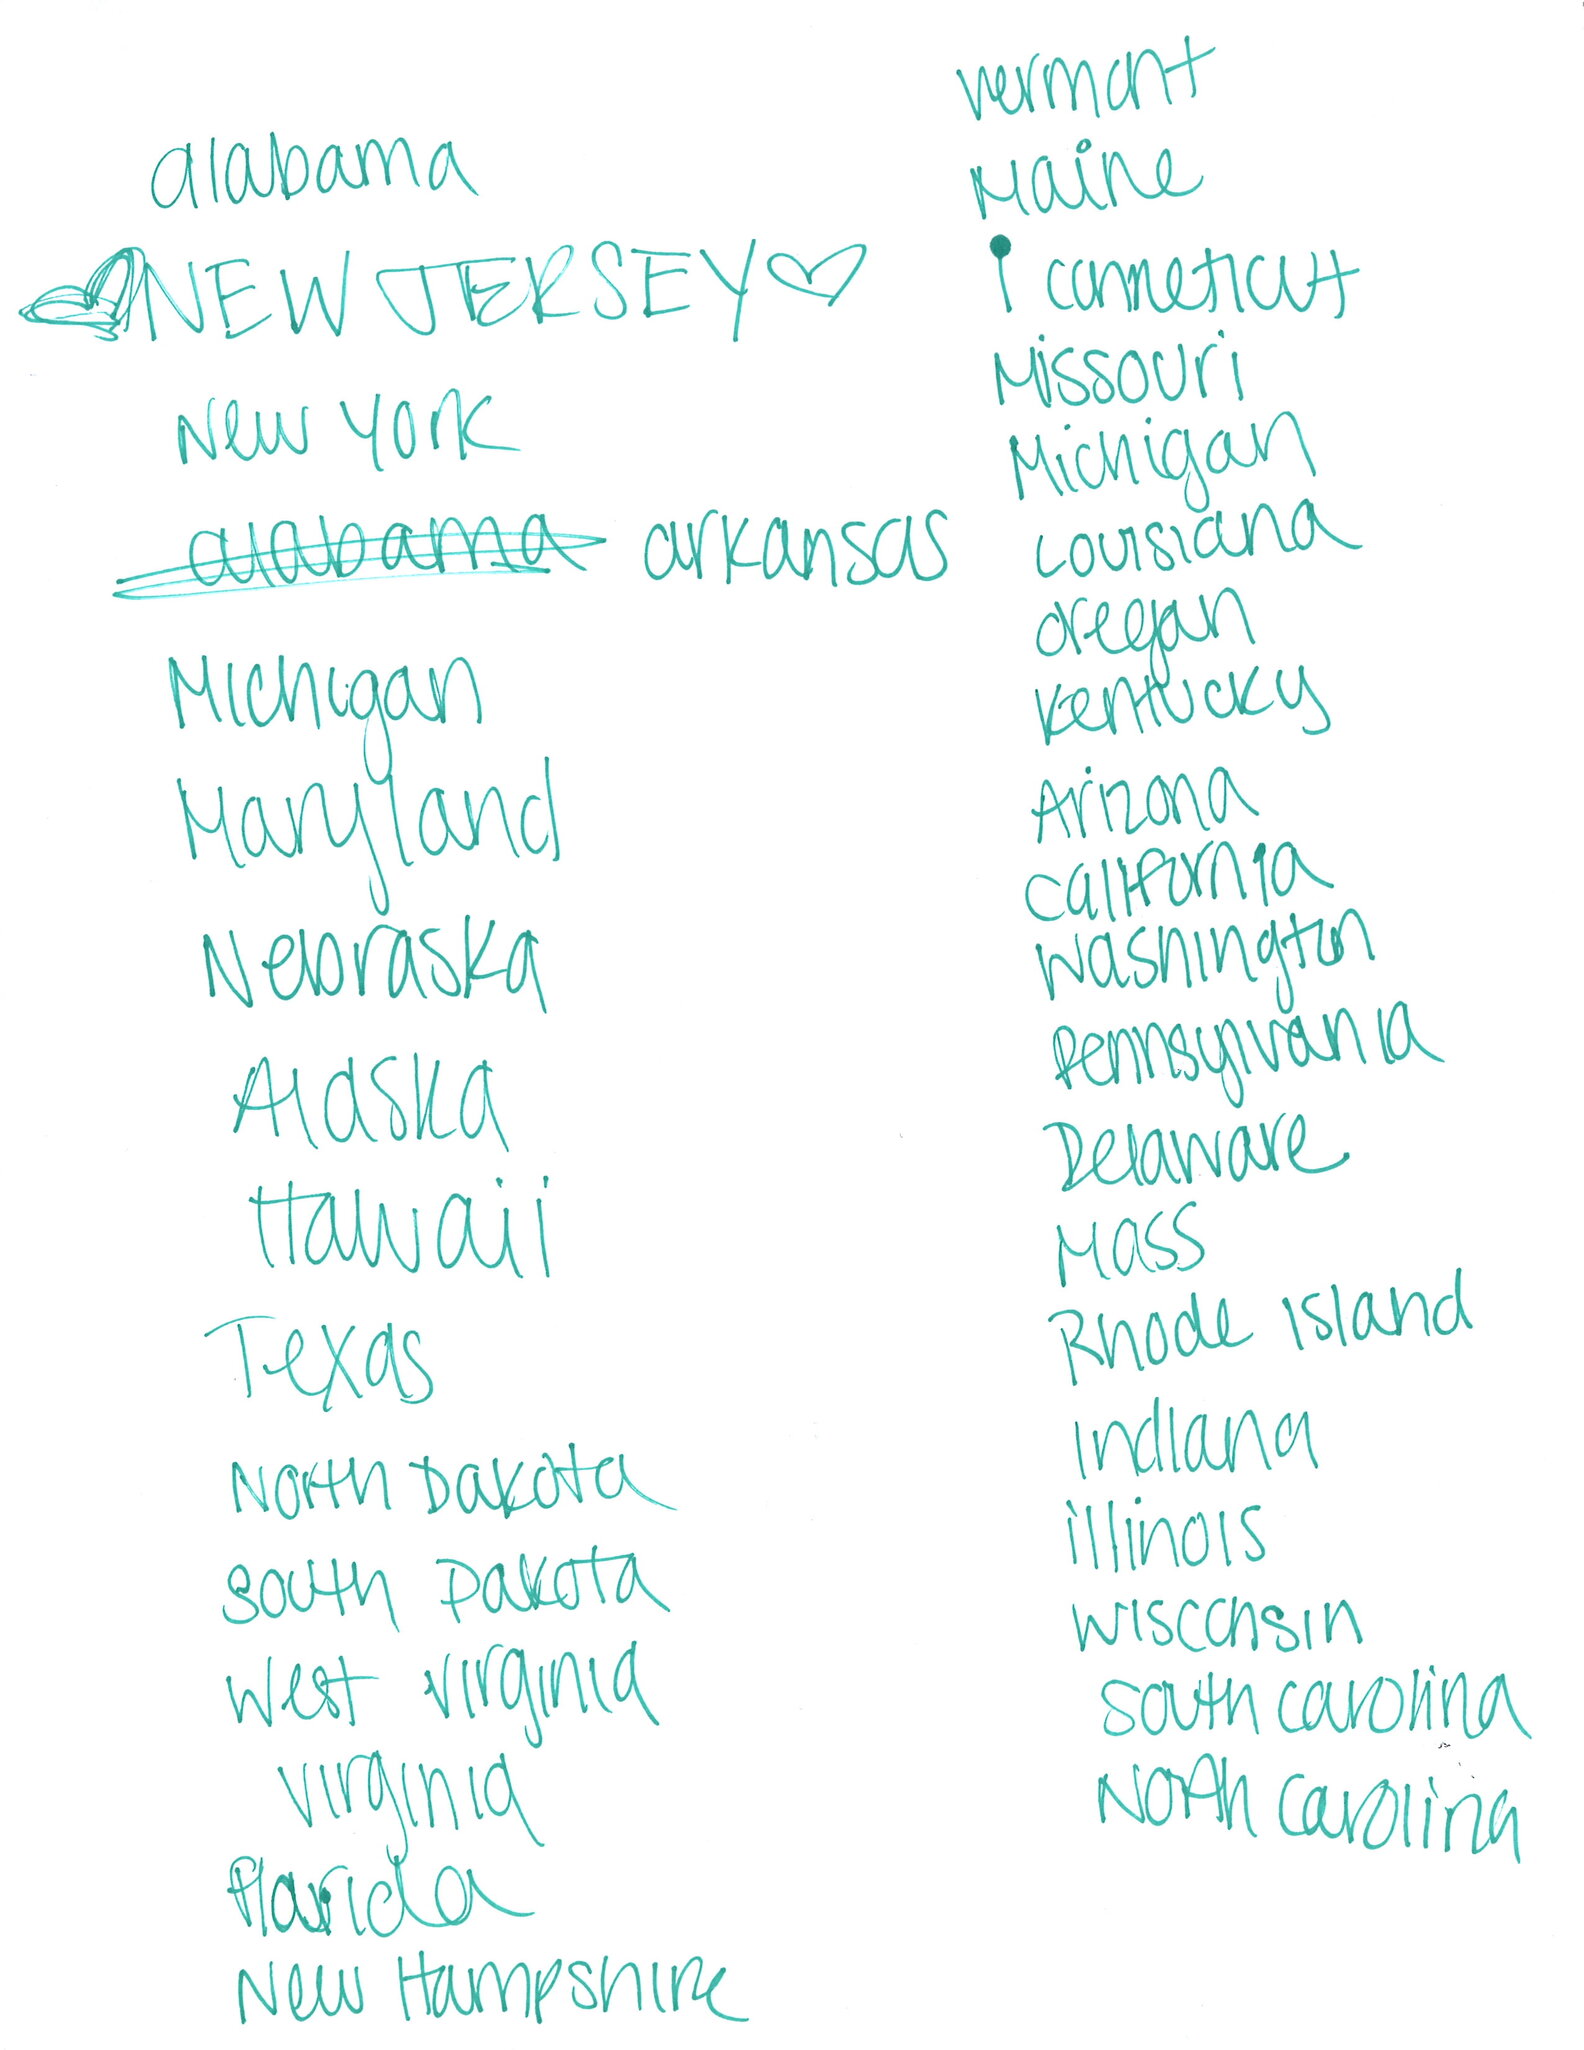 alabama
NEW JERSEY♡
New York
alabama arkansas
Michigan
Maryland
Nebraska
Alaska
Hawaii
Texas
North Dakota
South Dakota
West Virginia
Virginia
Florida
New Hampshire
vermont
Maine
conneticut
Missouri
Michigan
Louisiana
oregon
Kentucky
Arizona
California
Washington
Pennsylvania
Delaware
Mass
Rhode Island
Indiana
illinois
Wisconsin
South Carolina
North Carolina